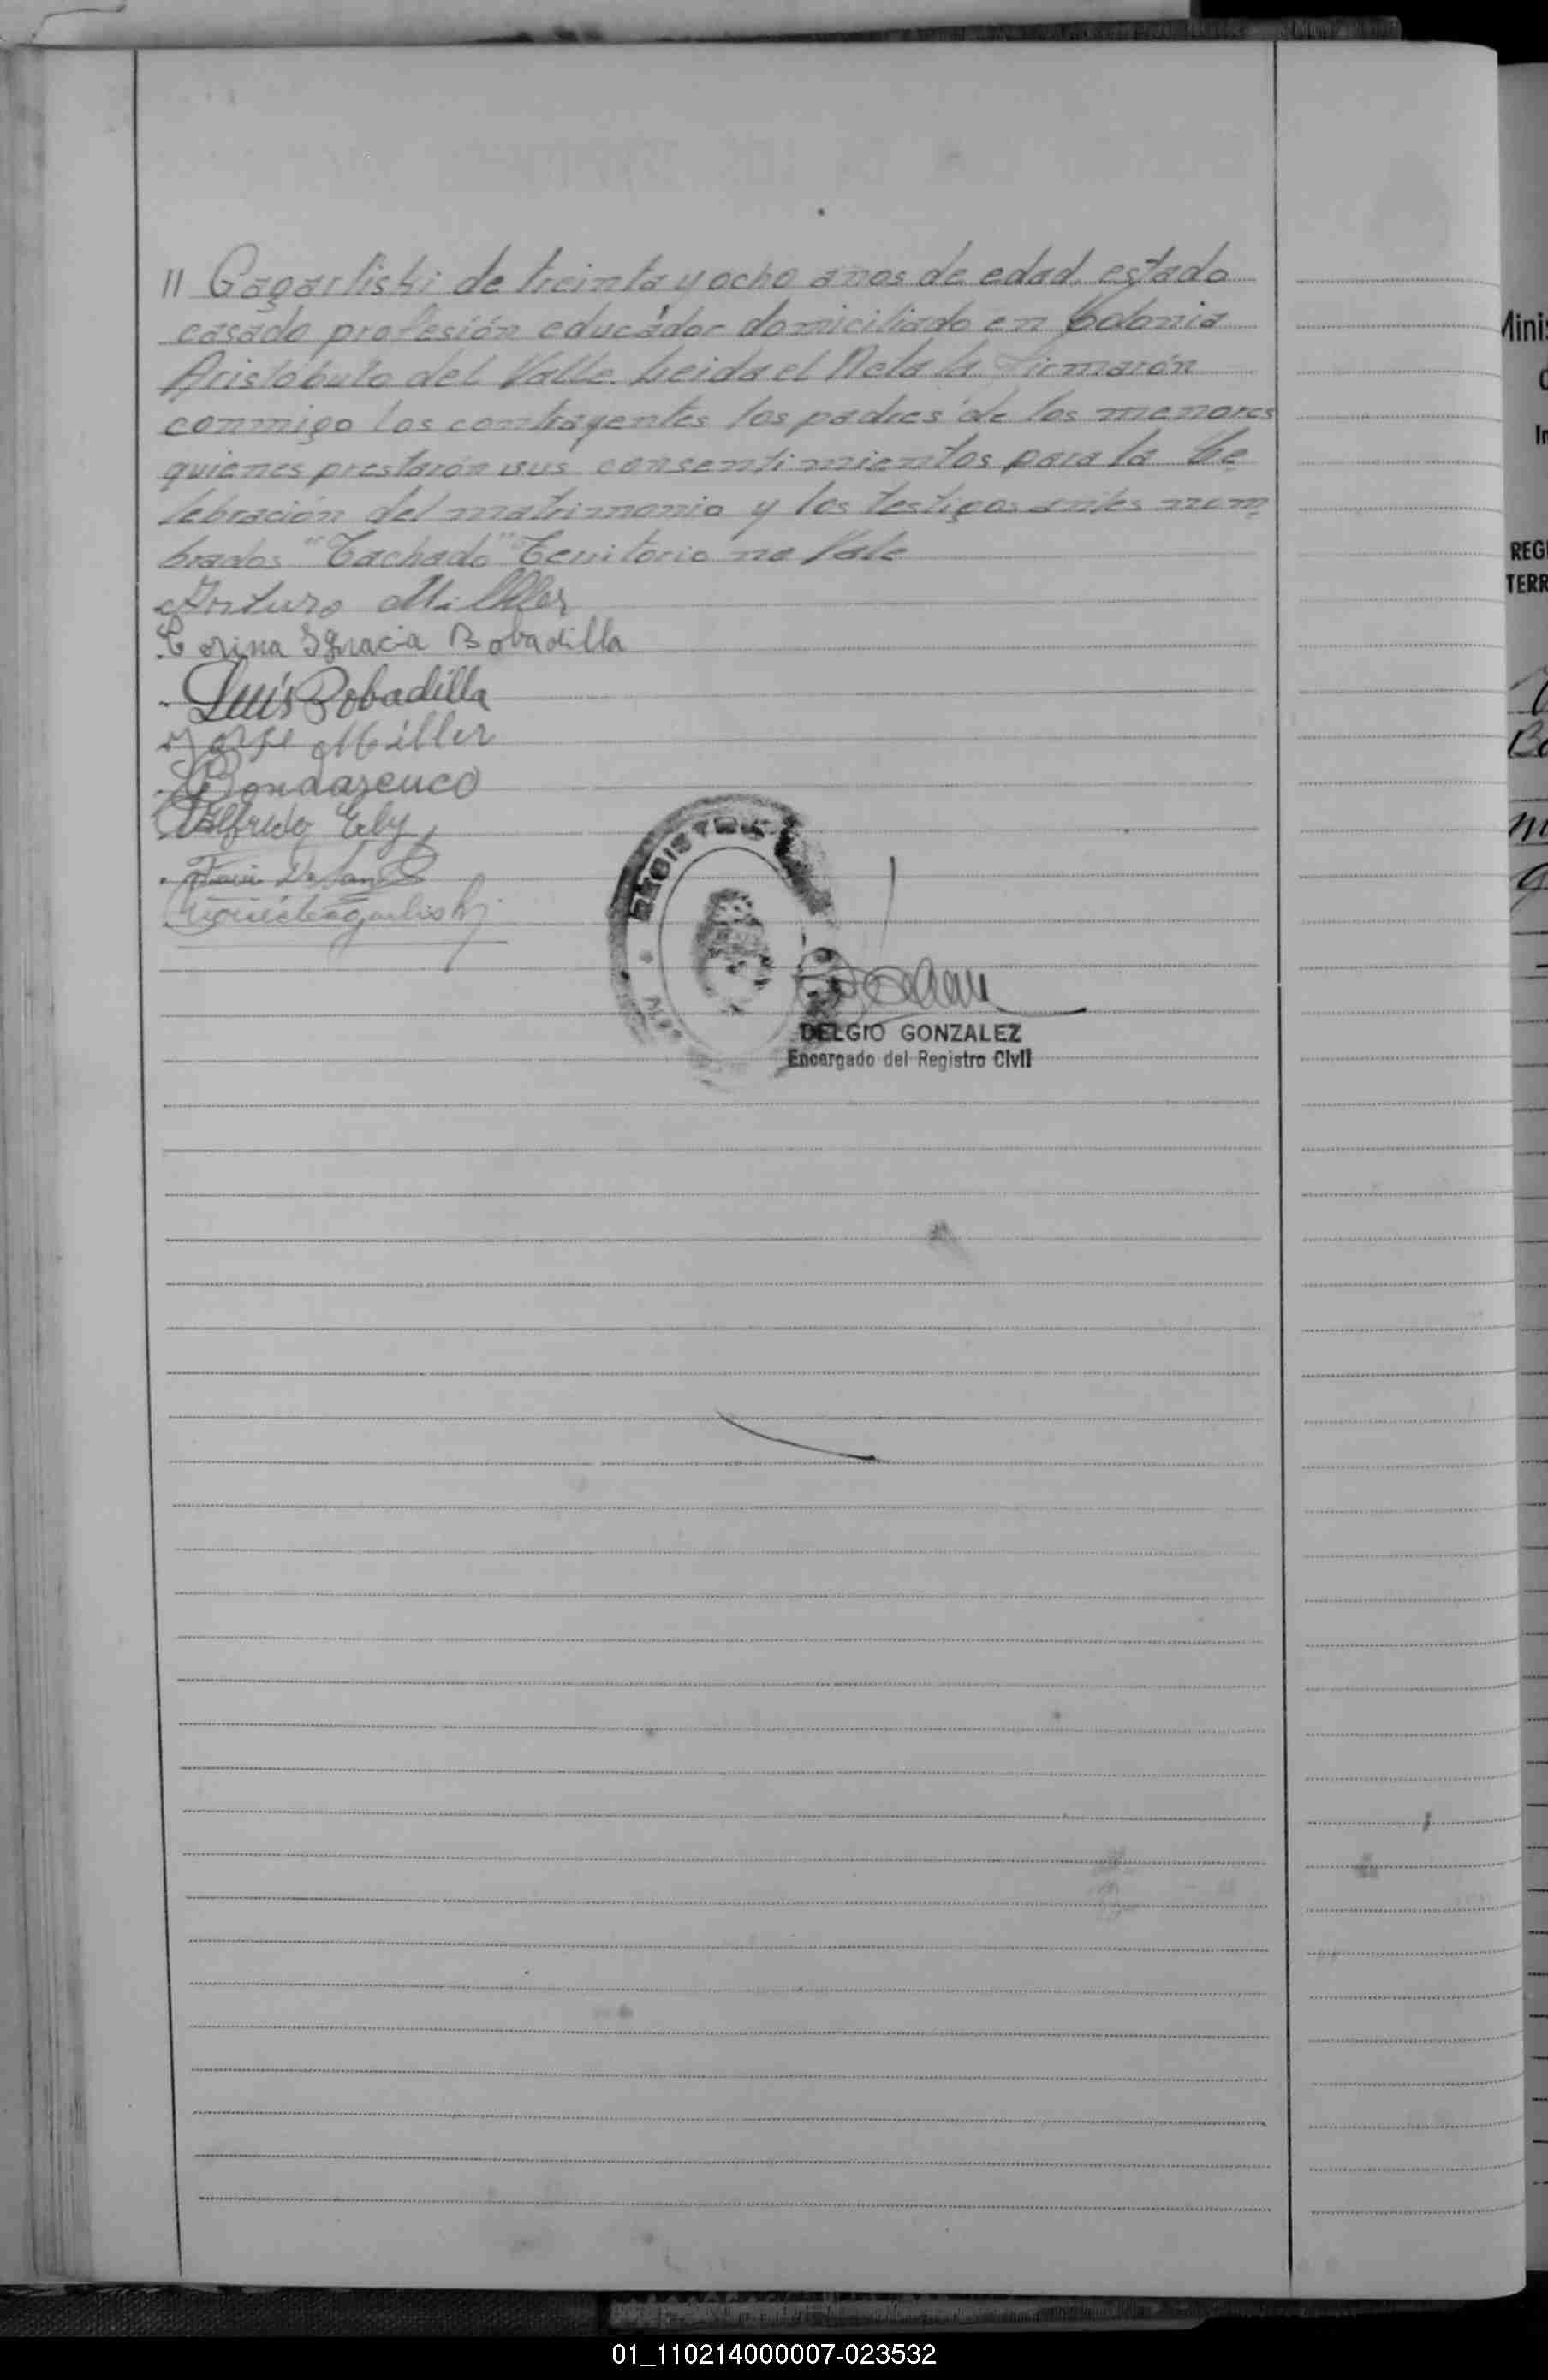 11 Gagarliski de treinta y ocho años de edad, estado
casado profesión educador domiciliado en Colonia
Aristóbulo del Valle. Leida el Acta la firmarón
conmigo los contrayentes los padres de los menores
quienes prestarón sus consentimientos para la Ce
lebración del matrimonio y los testigos antes nom
brados "Tachado" Territorio no Vale
Arturo Milller
Corina Ignacia Bobadilla
Luis Bobadilla
Jorge Miller
Bondarenco
Alfredo Ely
REGISTRO
DELGIO GONZALEZ
Encargado del Registro Civil
Minis
REGI
TERR
01_110214000007-023532